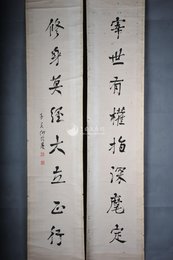 宰世有權指深麾定
修身莫經大立正行